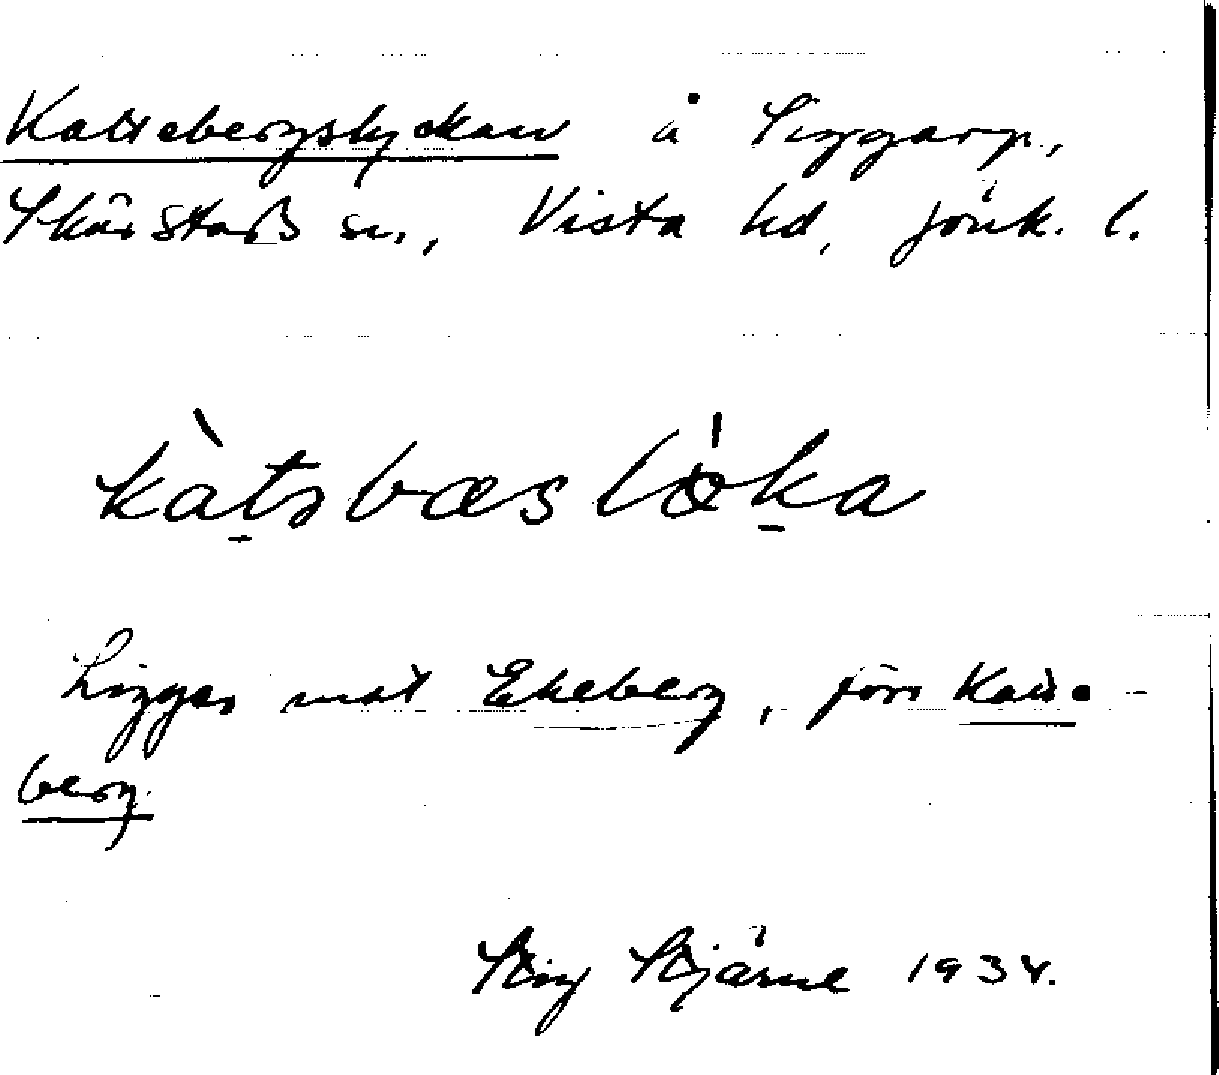 Kattebergslyckan å Siggarp.,
Skärstads sn., Vista hd, Jönk. l.
kàtəbæslö́ka
Ligger mot Ekeberg, förr Katte-
berg.
Stig Stjärne 1934.